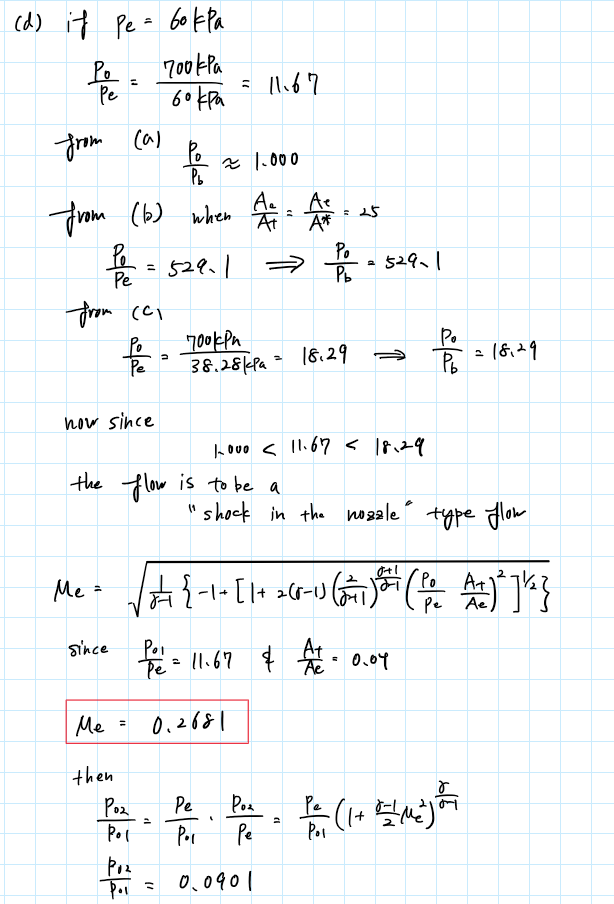 (d) if Pe = 60 kPa
Po/Pe = 700kPa/60kPa = 11.67
from (a) Po/Pb ≈ 1.000
from (b) when Ae/At = Ae/A* = 25
Po/Pe = 529.1 ⟹ Po/Pb = 529.1
from (c)
Po/Pe = 700kPa/38.28kPa = 18.29 ⟹ Po/Pb = 18.29
now since
1.000 < 11.67 < 18.29
the flow is to be a
"shock in the nozzle" type flow
Me = √(1/(γ-1) {-1+[1+2(γ-1)(2/(γ+1))^((γ+1)/(γ-1)) (Po/Pe At/Ae)^2]^(1/2)})
since Po1/Pe = 11.67 & At/Ae = 0.04
Me = 0.2681
then
Po2/Po1 = Pe/Po1 · Po2/Pe = Pe/Po1 (1+ (γ-1)/2 Me^2)^(γ/(γ-1))
Po2/Po1 = 0.0901